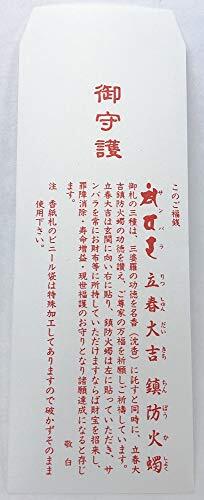 御守護
このご福銭
サンバラ
りっしゅんだいきちちんぼうかしょく
立春大吉鎮防火蠋
御札の三種は、三婆羅の功徳を名香（沈香）に託すと同時に、立春大
吉鎮防火蠋の功徳を讃え、ご尊家の万福を祈願しご祈禱しています。
立春大吉は玄関に向い右に貼り、鎮防火蠋は左に貼っていただき、サ
ンバラを常にお財布等に所持していただけますならば財宝を招来し、
罪障消除・寿命増益・現世擁護のお守りとなり諸願達成になると存じ
ます。
敬白
注　香紙札のビニール袋は特殊加工してありますので破かずそのまま
使用下さい。